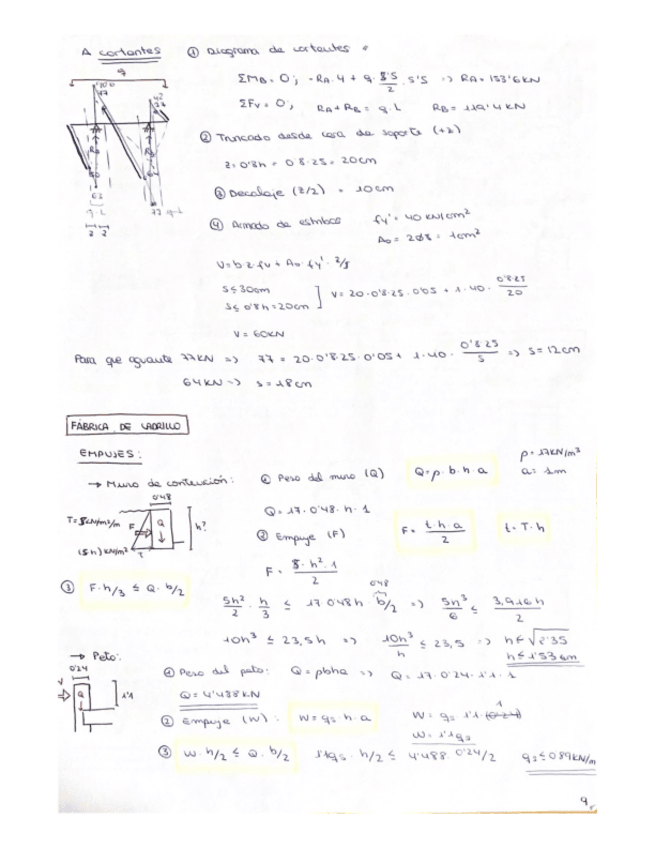 A cortantes ① Diagrama de cortantes
q
ΣM_B = 0; -R_A·4 + q·8'5/2·5'5 => R_A = 153'6KN
ΣF_V = 0; R_A+R_B = q·L R_B = 119'4KN
② Truncado desde cara de soporte (+2)
z=0'8h = 0'8·25 = 20cm
③ Decalaje (z/2) = 10cm
④ Armado de estribos fy' = 40 KN/cm²
A₀ = 2Ø8 = 1cm²
V=b·z·fv + A₀·fy'·z/s
s≤30cm
s≤0'8h=20cm ] V= 20·0'8·25·0'05 + 1·40·0'8·25/20
V = 60KN
Para que aguante 77KN => 77 = 20·0'8·25·0'05 + 1·40·0'8·25/s => s=12cm
64KN => s=18cm
FÁBRICA DE LADRILLO
EMPUJES:
→ Muro de contención: ① Peso del muro (Q) Q=ρ·b·h·a
ρ = 17KN/m³
a = 1m
0'48
Q = 17·0'48·h·1
T=5KN/m²/m F Q h?
(5h) KN/m² T
② Empuje (F) F = t·h·a/2 t=T·h
F = 5·h²·1/2
③ F·h/3 ≤ Q·b/2
0'48
5h²/2 · h/3 ≤ 17·0'48h·b/2 => 5h³/6 ≤ 3,916h/2
10h³ ≤ 23,5h => 10h³/h ≤ 23,5 => h≤√2'35
h≤1'53cm
→ Peto:
0'24
V Q 1'1
① Peso del peto: Q=ρbha => Q = 17·0'24·1'1·1
Q=4'488KN
② Empuje (W): W=qs·h·a W=qs·1'1·(0'24) 1
W=1'1qs
③ W·h/2 ≤ Q·b/2 1'1qs·h/2 ≤ 4'488·0'24/2 qs≤0'89KN/m
9